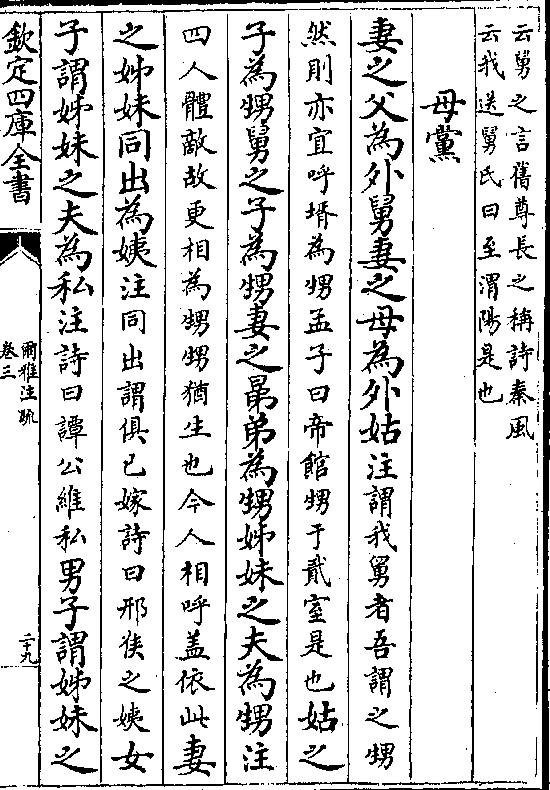 云舅之言舊尊長之稱詩秦風
云我送舅氏曰至渭陽是也
母黨
妻之父為外舅妻之母為外姑注謂我舅者吾謂之甥
然則亦宜呼壻為甥孟子曰帝館甥于貳室是也姑之
子為甥舅之子為甥妻之晜弟為甥姊妹之夫為甥注
四人體敵故更相為甥甥猶生也今人相呼盖依此妻
之姊妹同出為姨注同出謂俱已嫁詩曰邢侯之姨女
子謂姊妹之夫為私注詩曰譚公維私男子謂姊妹之
欽定四庫全書
爾雅注疏
卷三
二十九